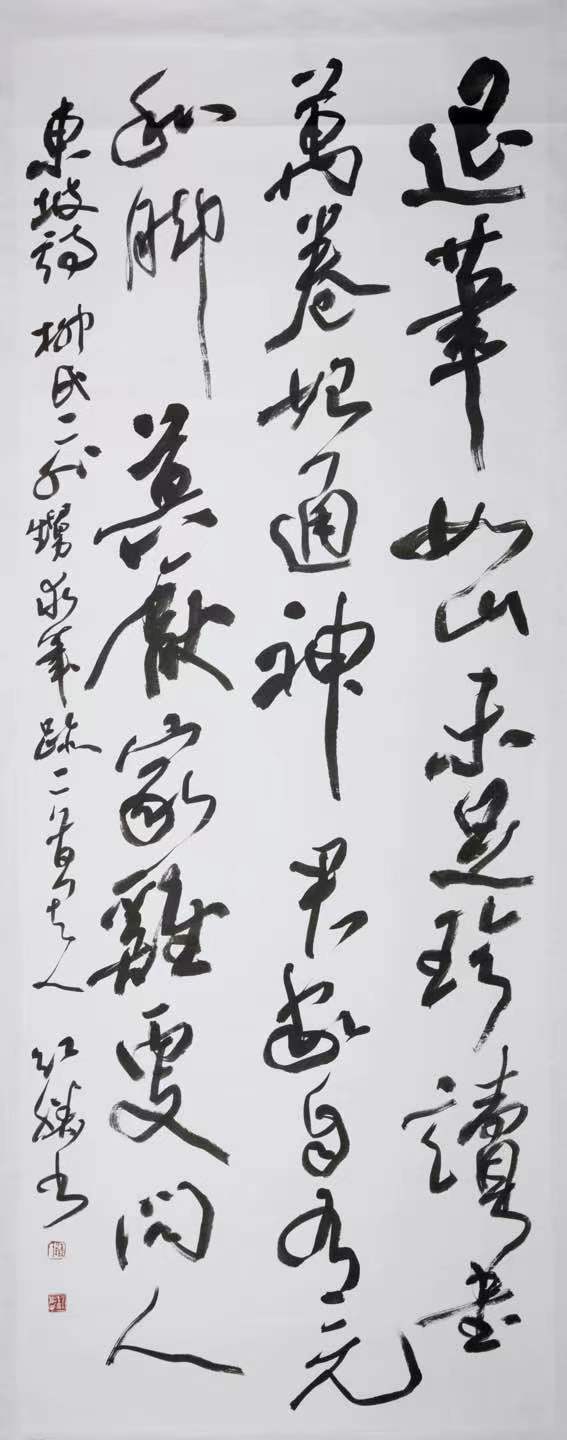 退筆如山未足珍讀書
萬卷始通神君家自有元
和脚莫厭家雞更問人
東坡詩 柳氏二外甥求筆跡二首 书